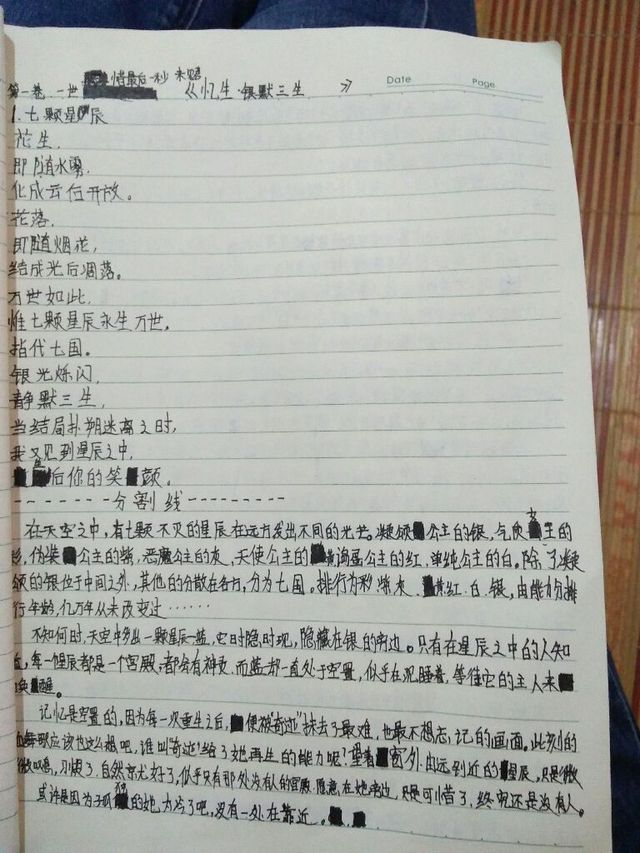 情最后一秒 未曾
第一卷 一世 《忆生·银默三生》 Date Page
1.七颗星辰
花生，
即随水雾，
化成云后开放。
花落，
即随烟花，
结成光后凋落。
万世如此，
惟七颗星辰永生万世。
指代七国。
银光烁闪，
静默三生，
当结局扑朔迷离之时，
我又见到星辰之中，
后你的笑颜。
------分割线---------
在天空之中，有七颗不灭的星辰在远方发出不同的光芒。凝领公主的银，气质女王的
彩，伪装公主的紫，恶魔公主的灰，天使公主的黄，捣蛋公主的红，单纯公主的白。除了凝
领的银位于中间之外，其他的分散在各方，分为七国。排行为彩.紫.灰.黄.红.白.银，由能力为排
行年龄，亿万年从未改变过······
不知何时，天空中多出一颗星辰—蓝，它时隐时现，隐藏在银的旁边。只有在星辰之中的人知
道，每一星辰都是一个宫殿，都会有神女，而蓝却一直处于空置，似乎在沉睡着，等待它的主人来
唤醒。
记忆是空置的，因为每一次重生之后，便被“奇迹”抹去了最难，也最不想忘记的画面。此刻的
她应该也这么想吧，谁叫“奇迹”给了她再生的能力呢？望着窗外由远到近的星辰，只是微
微叹息，习惯了，自然就好了，似乎只有那处没有人的宫殿愿意在她旁边，只是可惜了，终究还是没有人。
或许是因为孤的她太冷了吧，没有一处在靠近。